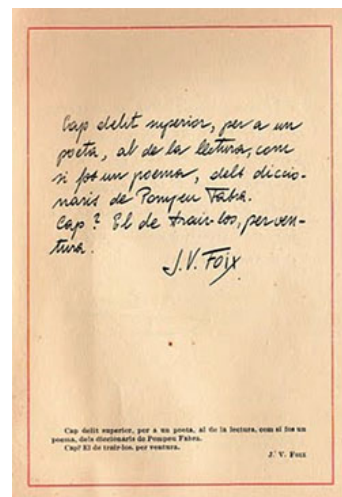 Cap delit superior, per a un
poeta, al de la lectura, com
si fos un poema, dels diccio-
naris de Pompeu Fabra.
Cap? El de trair-los, per ven-
tura.
J.V. FOIX
Cap delit superior, per a un poeta, al de la lectura, com si fos un
poema, dels diccionaris de Pompeu Fabra.
Cap? El de trair-los, per ventura.
J. V. Foix